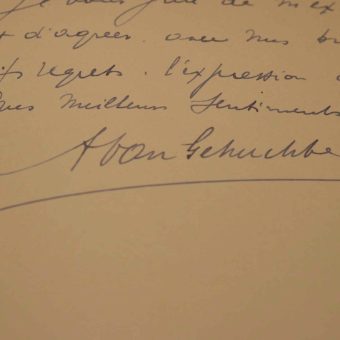 je vous prie de m'ex
et d'agréer, avec mes
vifs regrets, l'expression
mes meilleurs sentiments
A van Gehuchte